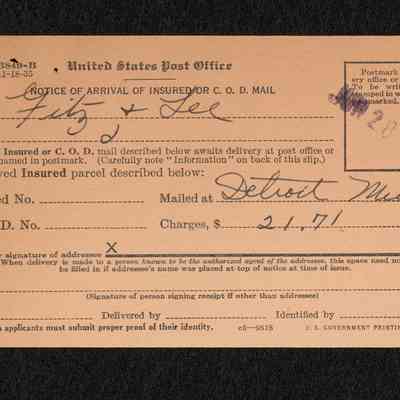 3849-B
11-18-35
United States Post Office
NOTICE OF ARRIVAL OF INSURED OR C. O. D. MAIL
Fitz & Lee
2
Insured or C. O. D. mail described below awaits delivery at post office or
named in postmark. (Carefully note "Information" on back of this slip.)
ved Insured parcel described below:
ed No. Mailed at Detroit Mic
D. No. Charges, $ 21.71
signature of addressee X
When delivery is made to a person known to be the authorized agent of the addressee, this space need no
be filled in if addressee's name was placed at top of notice at time of issue.
(Signature of person signing receipt if other than addressee)
Delivered by Identified by
applicants must submit proper proof of their identity.
U. S. GOVERNMENT PRINTIN
Postmark
ery office or
To be wri
stamped in w
marked.
20